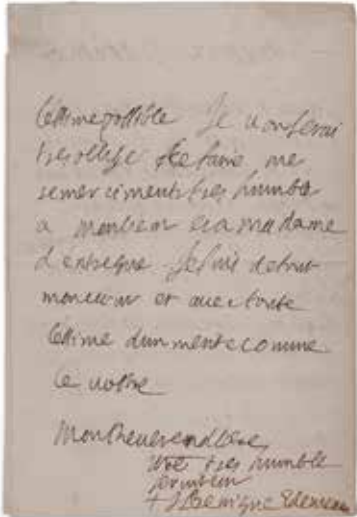 lestime possible Je vous serai
tres oblige de faire me
remerciments tres humble
a monsieur et a madame
d'entregue Je suis de tout
mon cuur et avec toute
lestime dun merite comme
le votre
Mon Reverend Pere,
Vost tres humble
serviteur
+ J Benigne Ev de meaux